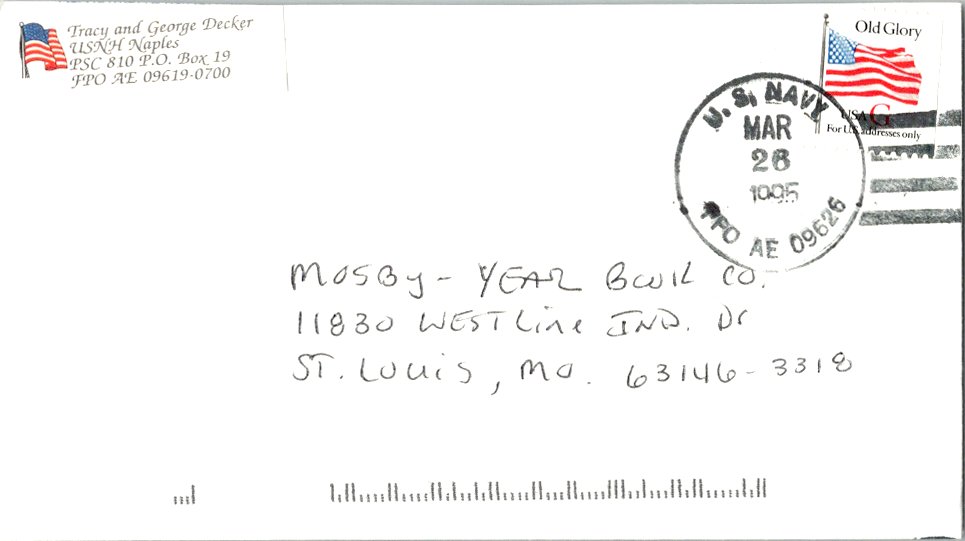 Tracy and George Decker
USNH Naples
PSC 810 P.O. Box 19
FPO AE 09619-0700
Old Glory
USA G
For U.S. addresses only
U.S. NAVY
MAR
26
1995
FPO AE 09626
MOSBY - YEAR BOOK CO.
11830 WESTLine IND. Dr
ST. LOUIS, MO. 63146-3318